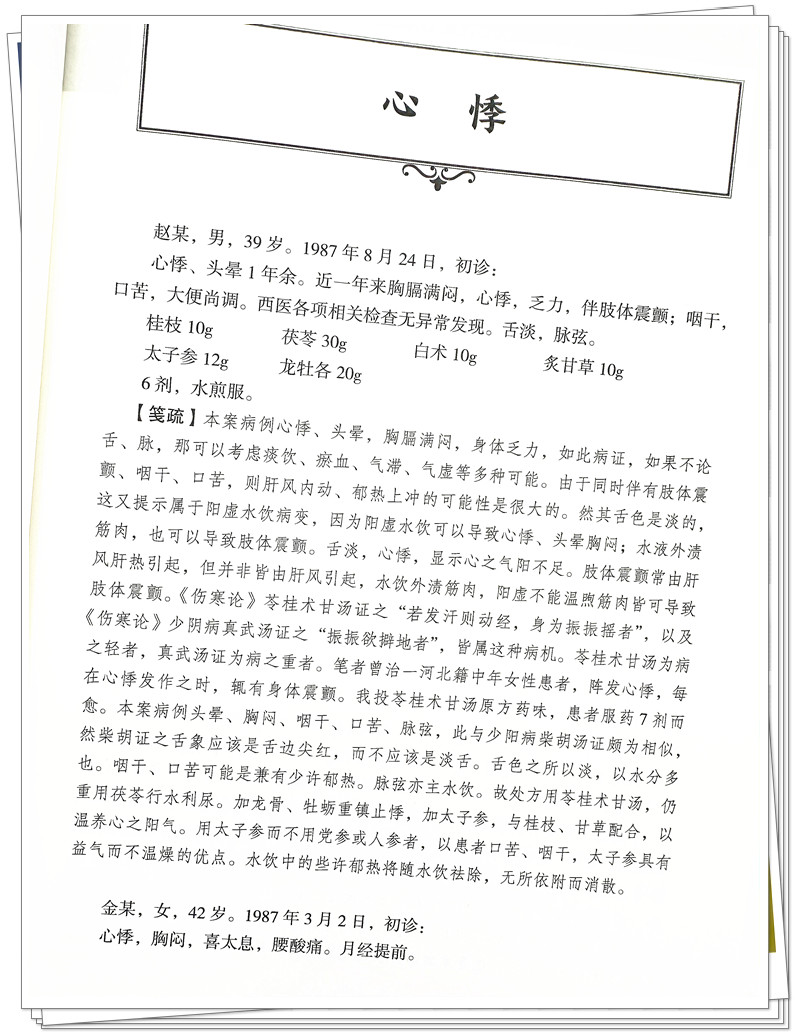 心 悸
赵某，男，39 岁。1987 年 8 月 24 日，初诊：
心悸、头晕 1 年余。近一年来胸膈满闷，心悸，乏力，伴肢体震颤；咽干，
口苦，大便尚调。西医各项相关检查无异常发现。舌淡，脉弦。
桂枝 10g 茯苓 30g 白术 10g 炙甘草 10g
太子参 12g 龙牡各 20g
6 剂，水煎服。
【笺疏】本案病例心悸、头晕，胸膈满闷，身体乏力，如此病证，如果不论
舌、脉，那可以考虑痰饮、瘀血、气滞、气虚等多种可能。由于同时伴有肢体震
颤、咽干、口苦，则肝风内动、郁热上冲的可能性是很大的。然其舌色是淡的，
这又提示属于阳虚水饮病变，因为阳虚水饮可以导致心悸、头晕胸闷；水液外渍
筋肉，也可以导致肢体震颤。舌淡，心悸，显示心之气阳不足。肢体震颤常由肝
风肝热引起，但并非皆由肝风引起，水饮外渍筋肉，阳虚不能温煦筋肉皆可导致
肢体震颤。《伤寒论》苓桂术甘汤证之“若发汗则动经，身为振振摇者”，以及
《伤寒论》少阴病真武汤证之“振振欲擗地者”，皆属这种病机。苓桂术甘汤为病
之轻者，真武汤证为病之重者。笔者曾治一河北籍中年女性患者，阵发心悸，每
在心悸发作之时，辄有身体震颤。我投苓桂术甘汤原方药味，患者服药 7 剂而
愈。本案病例头晕、胸闷、咽干、口苦、脉弦，此与少阳病柴胡汤证颇为相似，
然柴胡证之舌象应该是舌边尖红，而不应该是淡舌。舌色之所以淡，以水分多
也。咽干、口苦可能是兼有少许郁热。脉弦亦主水饮。故处方用苓桂术甘汤，仍
重用茯苓行水利尿。加龙骨、牡蛎重镇止悸，加太子参，与桂枝、甘草配合，以
温养心之阳气。用太子参而不用党参或人参者，以患者口苦、咽干，太子参具有
益气而不温燥的优点。水饮中的些许郁热将随水饮祛除，无所依附而消散。
金某，女，42 岁。1987 年 3 月 2 日，初诊：
心悸，胸闷，喜太息，腰酸痛。月经提前。